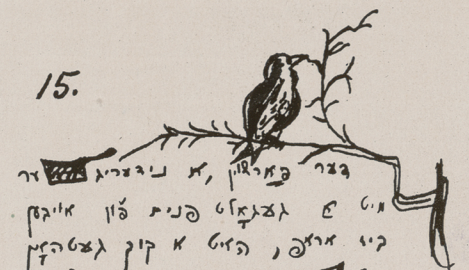 15.
דער פּאַרשוין, א נידעריג ער
מיט א געגאָלט פנים פֿון אויבען
ביז אראפ, האט א קוק געטהאָן